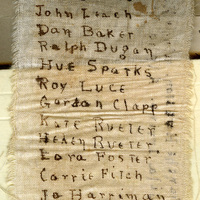 John Leach
Dan Baker
Ralph Dugan
Hue Sparks
Roy Luce
Gordon Clapp
Kate Rueter
Helen Rueter
Lora Foster
Carrie Fitch
Jo Harriman